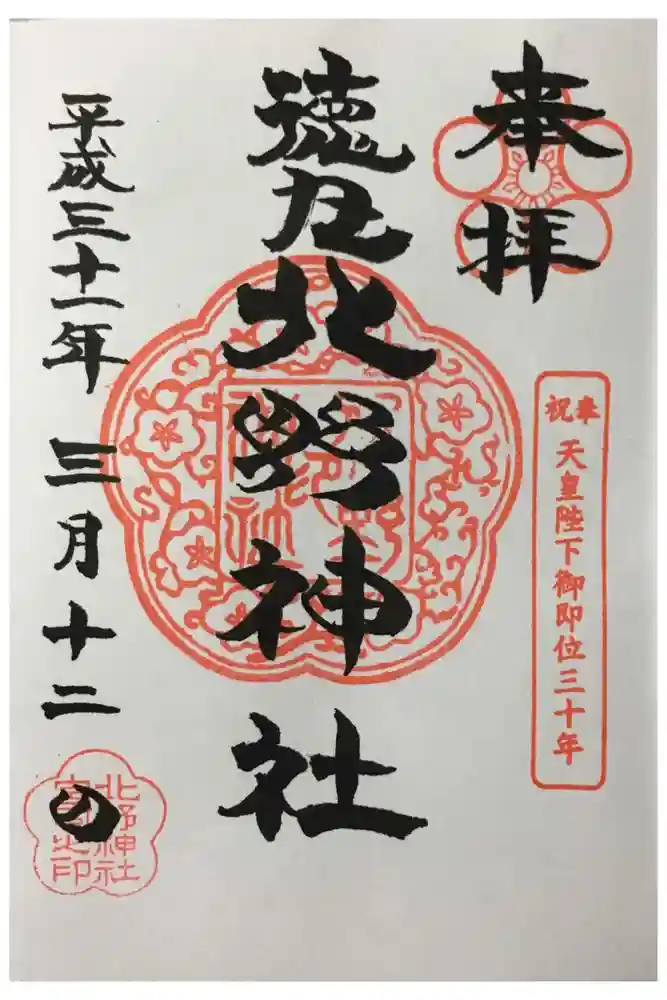 奉拝
奉祝
天皇陛下御即位三十年
徳丸北野神社
平成三十一年三月十二日
北野神社
宮司之印